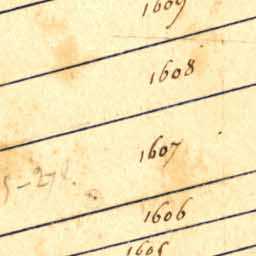 1609
1608
1607
1606
1605